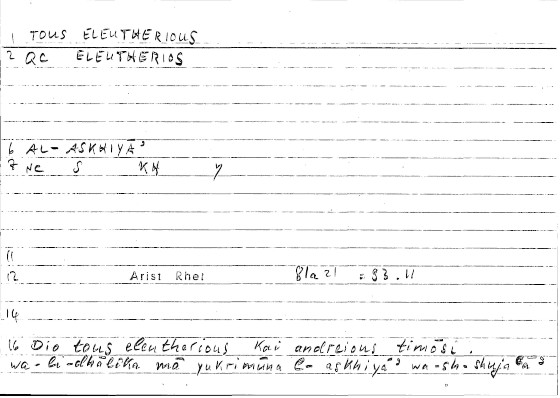 1 TOUS ELEUTHERIOUS
2 QC ELEUTHERIOS
6 AL- ASKHIYĀʾ
7 NC S KH Y
11
12 Arist Rhet 81a21 = 93.11
14
16 Dio tous eleutherious kai andreious timōsi.
wa-li-dhālika mā yukrimūna l-askhiyāʾ wa-sh-shujaʿāʾ